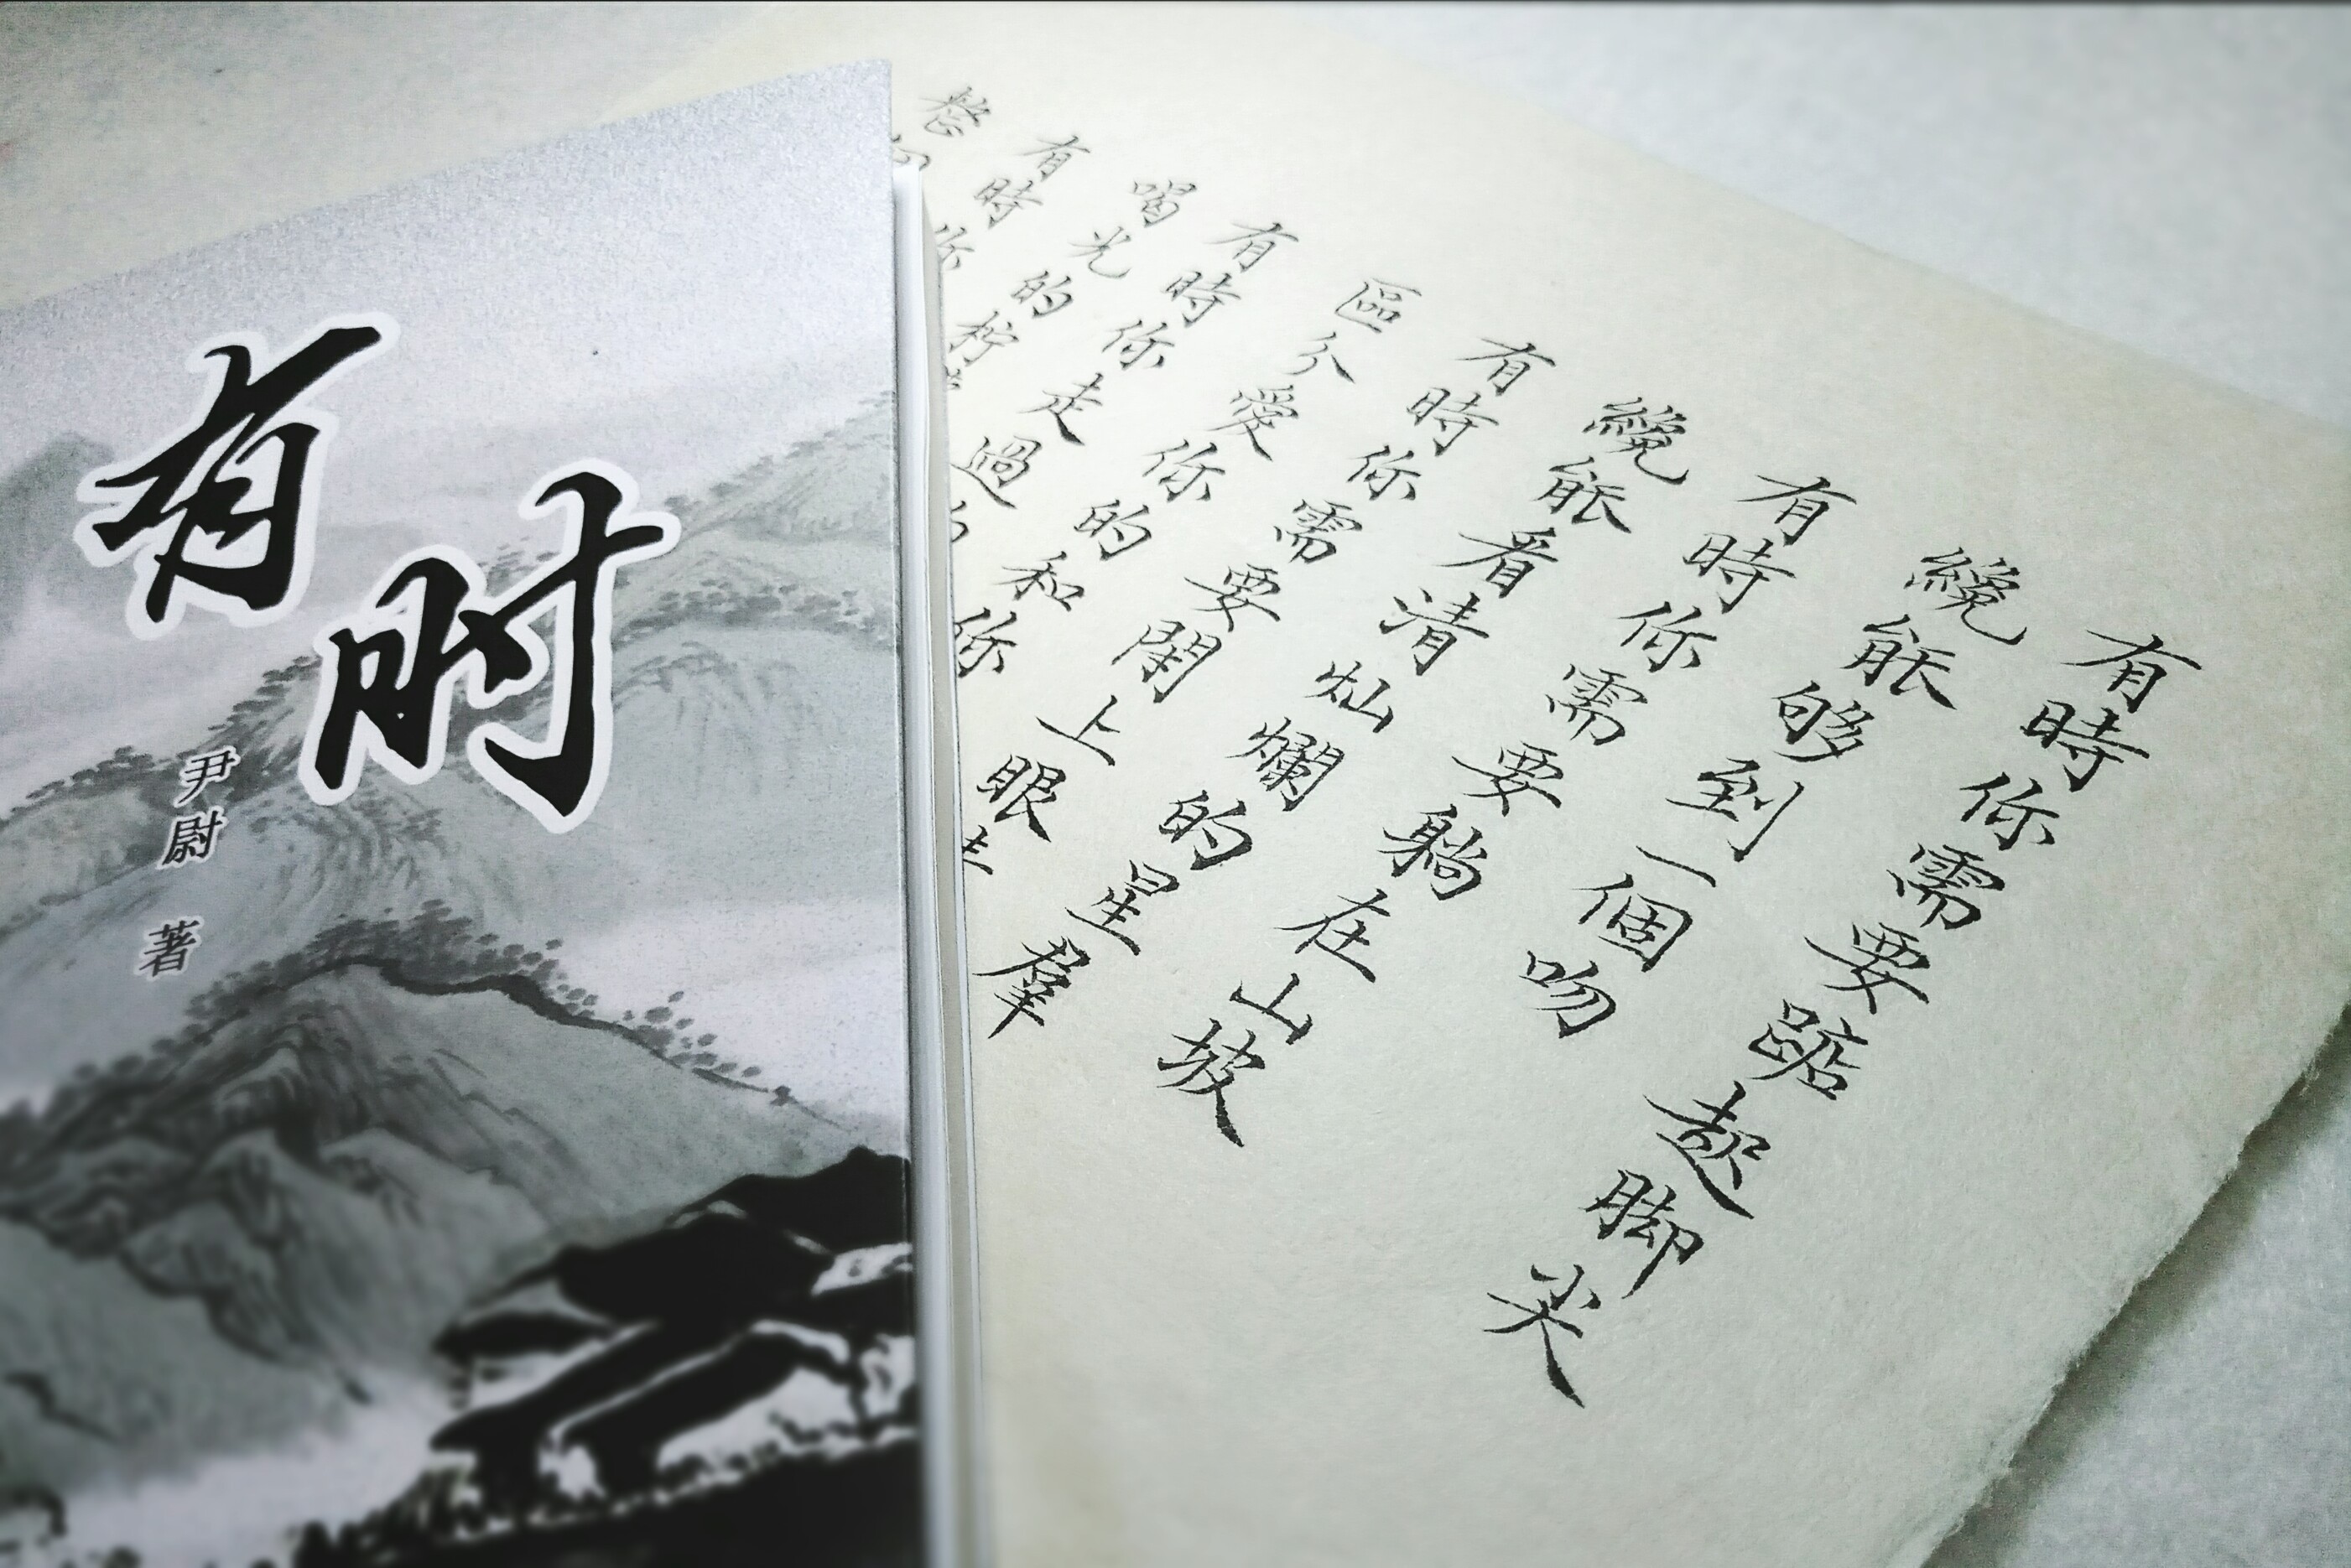 有时
尹尉 著
有時你需要踮起脚尖
纔能够到一個吻
有時你需要躺在山坡
纔能看清灿爛的星羣
有時你需要閉上眼
區分愛你的和你
有時你走過
喝光的柠
有時你